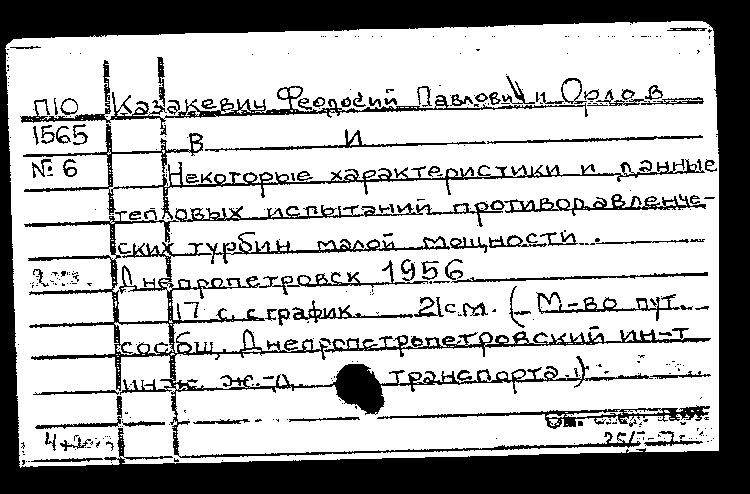 П10 Казакевич Феодосий Павлович и Орлов
1565 В И
№ 6 Некоторые характеристики и данные
тепловых испытаний противодавленче-
ских турбин малой мощности.
Днепропетровск 1956.
17 с. с график. 21см. (М-во пут.
сообщ, Днепропетропетровский ин-т
инж. ж.-д. транспорта.)